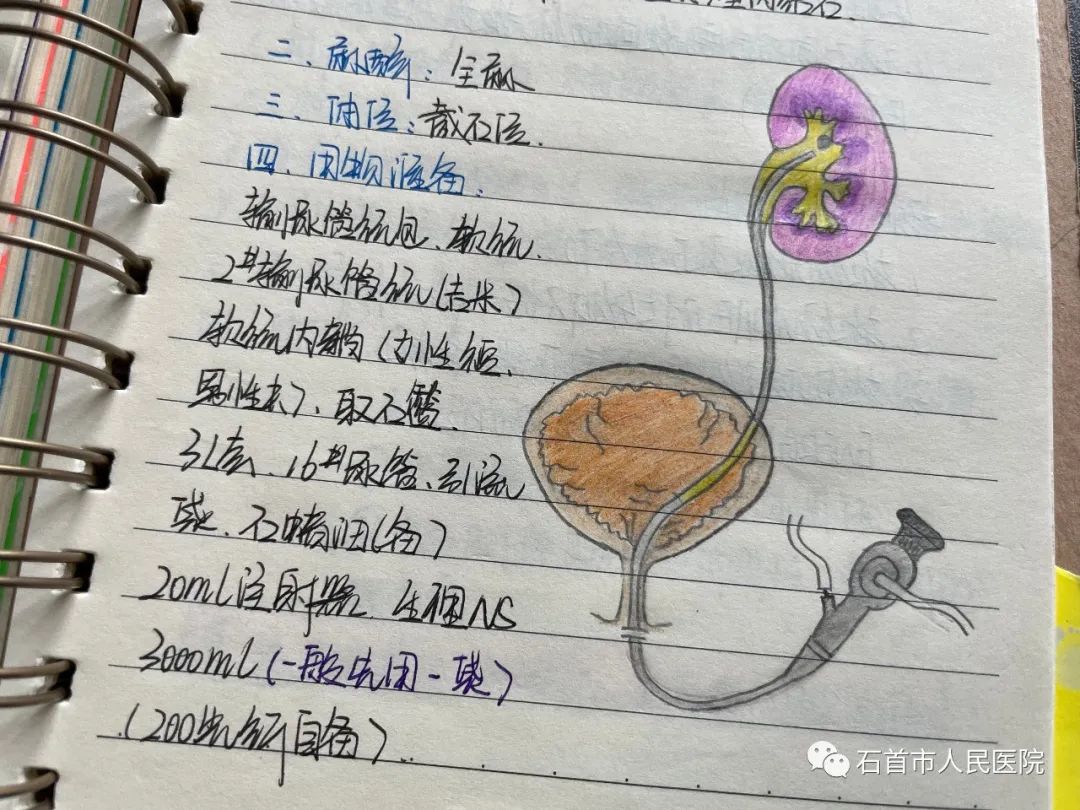 二、麻醉:全麻
三、体位:截石位.
四、用物准备:
输尿管镜包、软镜.
2#输尿管镜(吉米)
软镜内鞘(女性短.
男性长)、取石篮.
3L袋、16#尿管、引流
袋、石蜡油(备)
20ml注射器 生理NS
3000ml(一般先用一袋)
(200 自备)
石首市人民医院